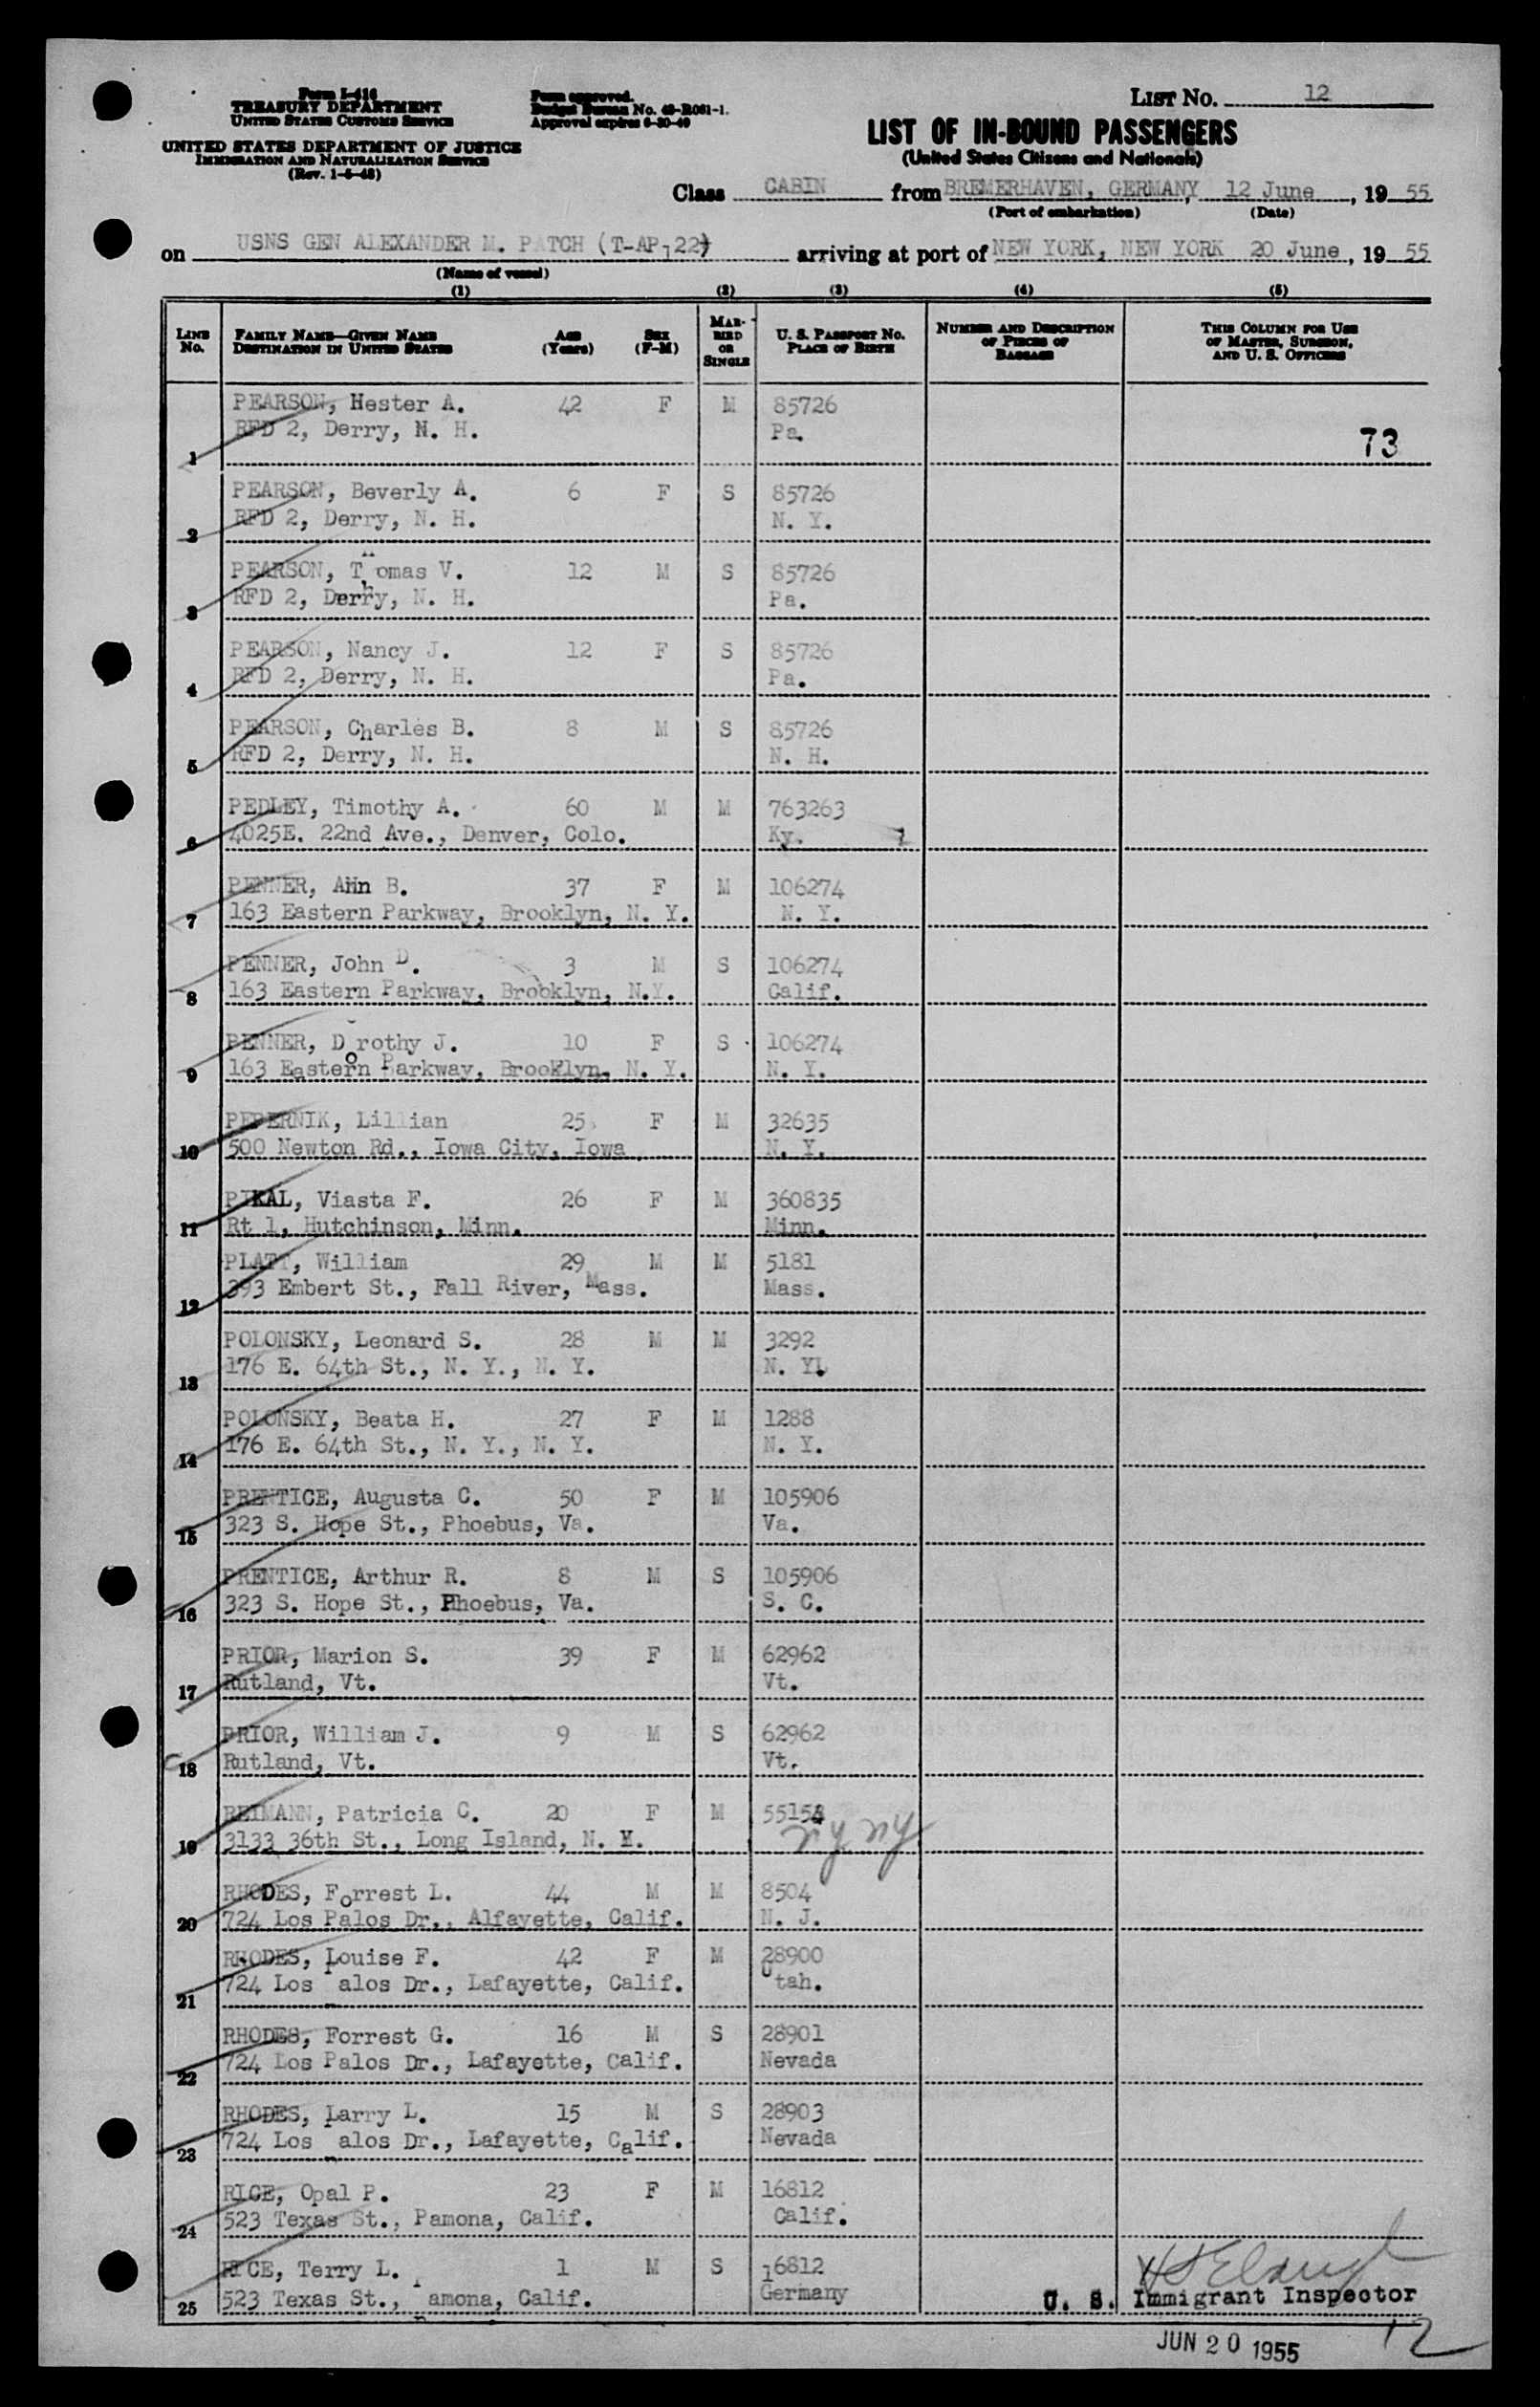 Form I-416
TREASURY DEPARTMENT
UNITED STATES CUSTOMS SERVICE
UNITED STATES DEPARTMENT OF JUSTICE
IMMIGRATION AND NATURALIZATION SERVICE
(Rev. 1-5-48)
Form approved.
Budget Bureau No. 43-R061-1.
Approval expires 6-30-49
LIST No. 12
LIST OF IN-BOUND PASSENGERS
(United States Citizens and Nationals)
Class CABIN from BREMERHAVEN, GERMANY, 12 June, 19 55
(Port of embarkation) (Date)
on USNS GEN ALEXANDER M. PATCH (T-AP122) arriving at port of NEW YORK, NEW YORK 20 June, 19 55
(Name of vessel)
(1) (2) (3) (4) (5)
LINE No. FAMILY NAME—GIVEN NAME DESTINATION IN UNITED STATES AGE (Years) SEX (F-M) MARRIED OR SINGLE U. S. PASSPORT NO. PLACE OF BIRTH NUMBER AND DESCRIPTION OF PIECES OF BAGGAGE THIS COLUMN FOR USE OF MASTER, SURGEON, AND U. S. OFFICERS
PEARSON, Hester A. 42 F M 85726
RFD 2, Derry, N. H. Pa. 73
1
PEARSON, Beverly A. 6 F S 85726
RFD 2, Derry, N. H. N. Y.
2
PEARSON, Thomas V. 12 M S 85726
RFD 2, Derry, N. H. Pa.
3
PEARSON, Nancy J. 12 F S 85726
RFD 2, Derry, N. H. Pa.
4
PEARSON, Charles B. 8 M S 85726
RFD 2, Derry, N. H. N. H.
5
PEDLEY, Timothy A. 60 M M 763263
4025E. 22nd Ave., Denver, Colo. Ky.
6
PENNER, Ann B. 37 F M 106274
163 Eastern Parkway, Brooklyn, N. Y. N. Y.
7
PENNER, John D. 3 M S 106274
163 Eastern Parkway, Brooklyn, N.Y. Calif.
8
PENNER, Dorothy J. 10 F S 106274
163 Eastern Parkway, Brooklyn, N. Y. N. Y.
9
PEPERNIK, Lillian 25 F M 32635
500 Newton Rd., Iowa City, Iowa N. Y.
10
PIKAL, Viasta F. 26 F M 360835
Rt 1, Hutchinson, Minn. Minn.
11
PLATT, William 29 M M 5181
393 Embert St., Fall River, Mass. Mass.
12
POLONSKY, Leonard S. 28 M M 3292
176 E. 64th St., N. Y., N. Y. N. Y.
13
POLONSKY, Beata H. 27 F M 1288
176 E. 64th St., N. Y., N. Y. N. Y.
14
PRENTICE, Augusta C. 50 F M 105906
323 S. Hope St., Phoebus, Va. Va.
15
PRENTICE, Arthur R. 8 M S 105906
323 S. Hope St., Phoebus, Va. S. C.
16
PRIOR, Marion S. 39 F M 62962
Rutland, Vt. Vt.
17
PRIOR, William J. 9 M S 62962
Rutland, Vt. Vt.
18
REIMANN, Patricia C. 20 F M
3133 36th St., Long Island, N. Y.
19
RHODES, Forrest L. 44 M M 8504
724 Los Palos Dr., Alfayette, Calif. N. J.
20
RHODES, Louise F. 42 F M 28900
724 Los alos Dr., Lafayette, Calif. Utah.
21
RHODES, Forrest G. 16 M S 28901
724 Los Palos Dr., Lafayette, Calif. Nevada
22
RHODES, Larry L. 15 M S 28903
724 Los alos Dr., Lafayette, Calif. Nevada
23
RICE, Opal P. 23 F M 16812
523 Texas St., Pamona, Calif. Calif.
24
RICE, Terry L. 1 M S 16812
523 Texas St., Pamona, Calif. Germany
25
U. S. Immigrant Inspector
JUN 20 1955 12